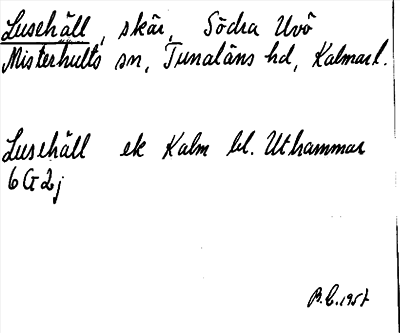 Lusehäll, skär, Södra Uvö
Misterhults sn, Tunaläns hd, Kalmar l.
Lusehäll ek Kalm bl. Uthammar
6G2j
B.E. 1957